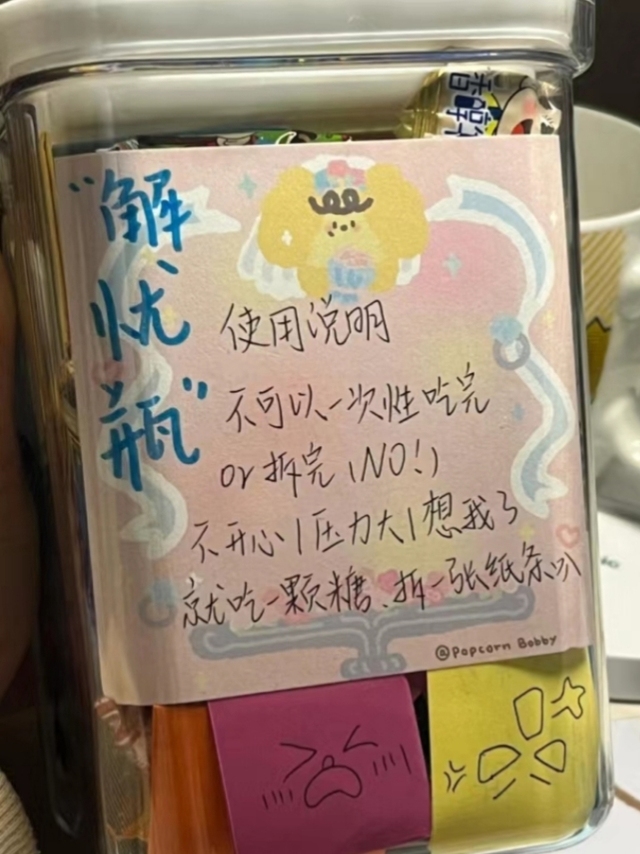 “解忧瓶”
使用说明
不可以一次性吃完
or拆完(NO!)
不开心|压力大|想我了
就吃一颗糖、拆一张纸条叭
@Popcorn Bobby